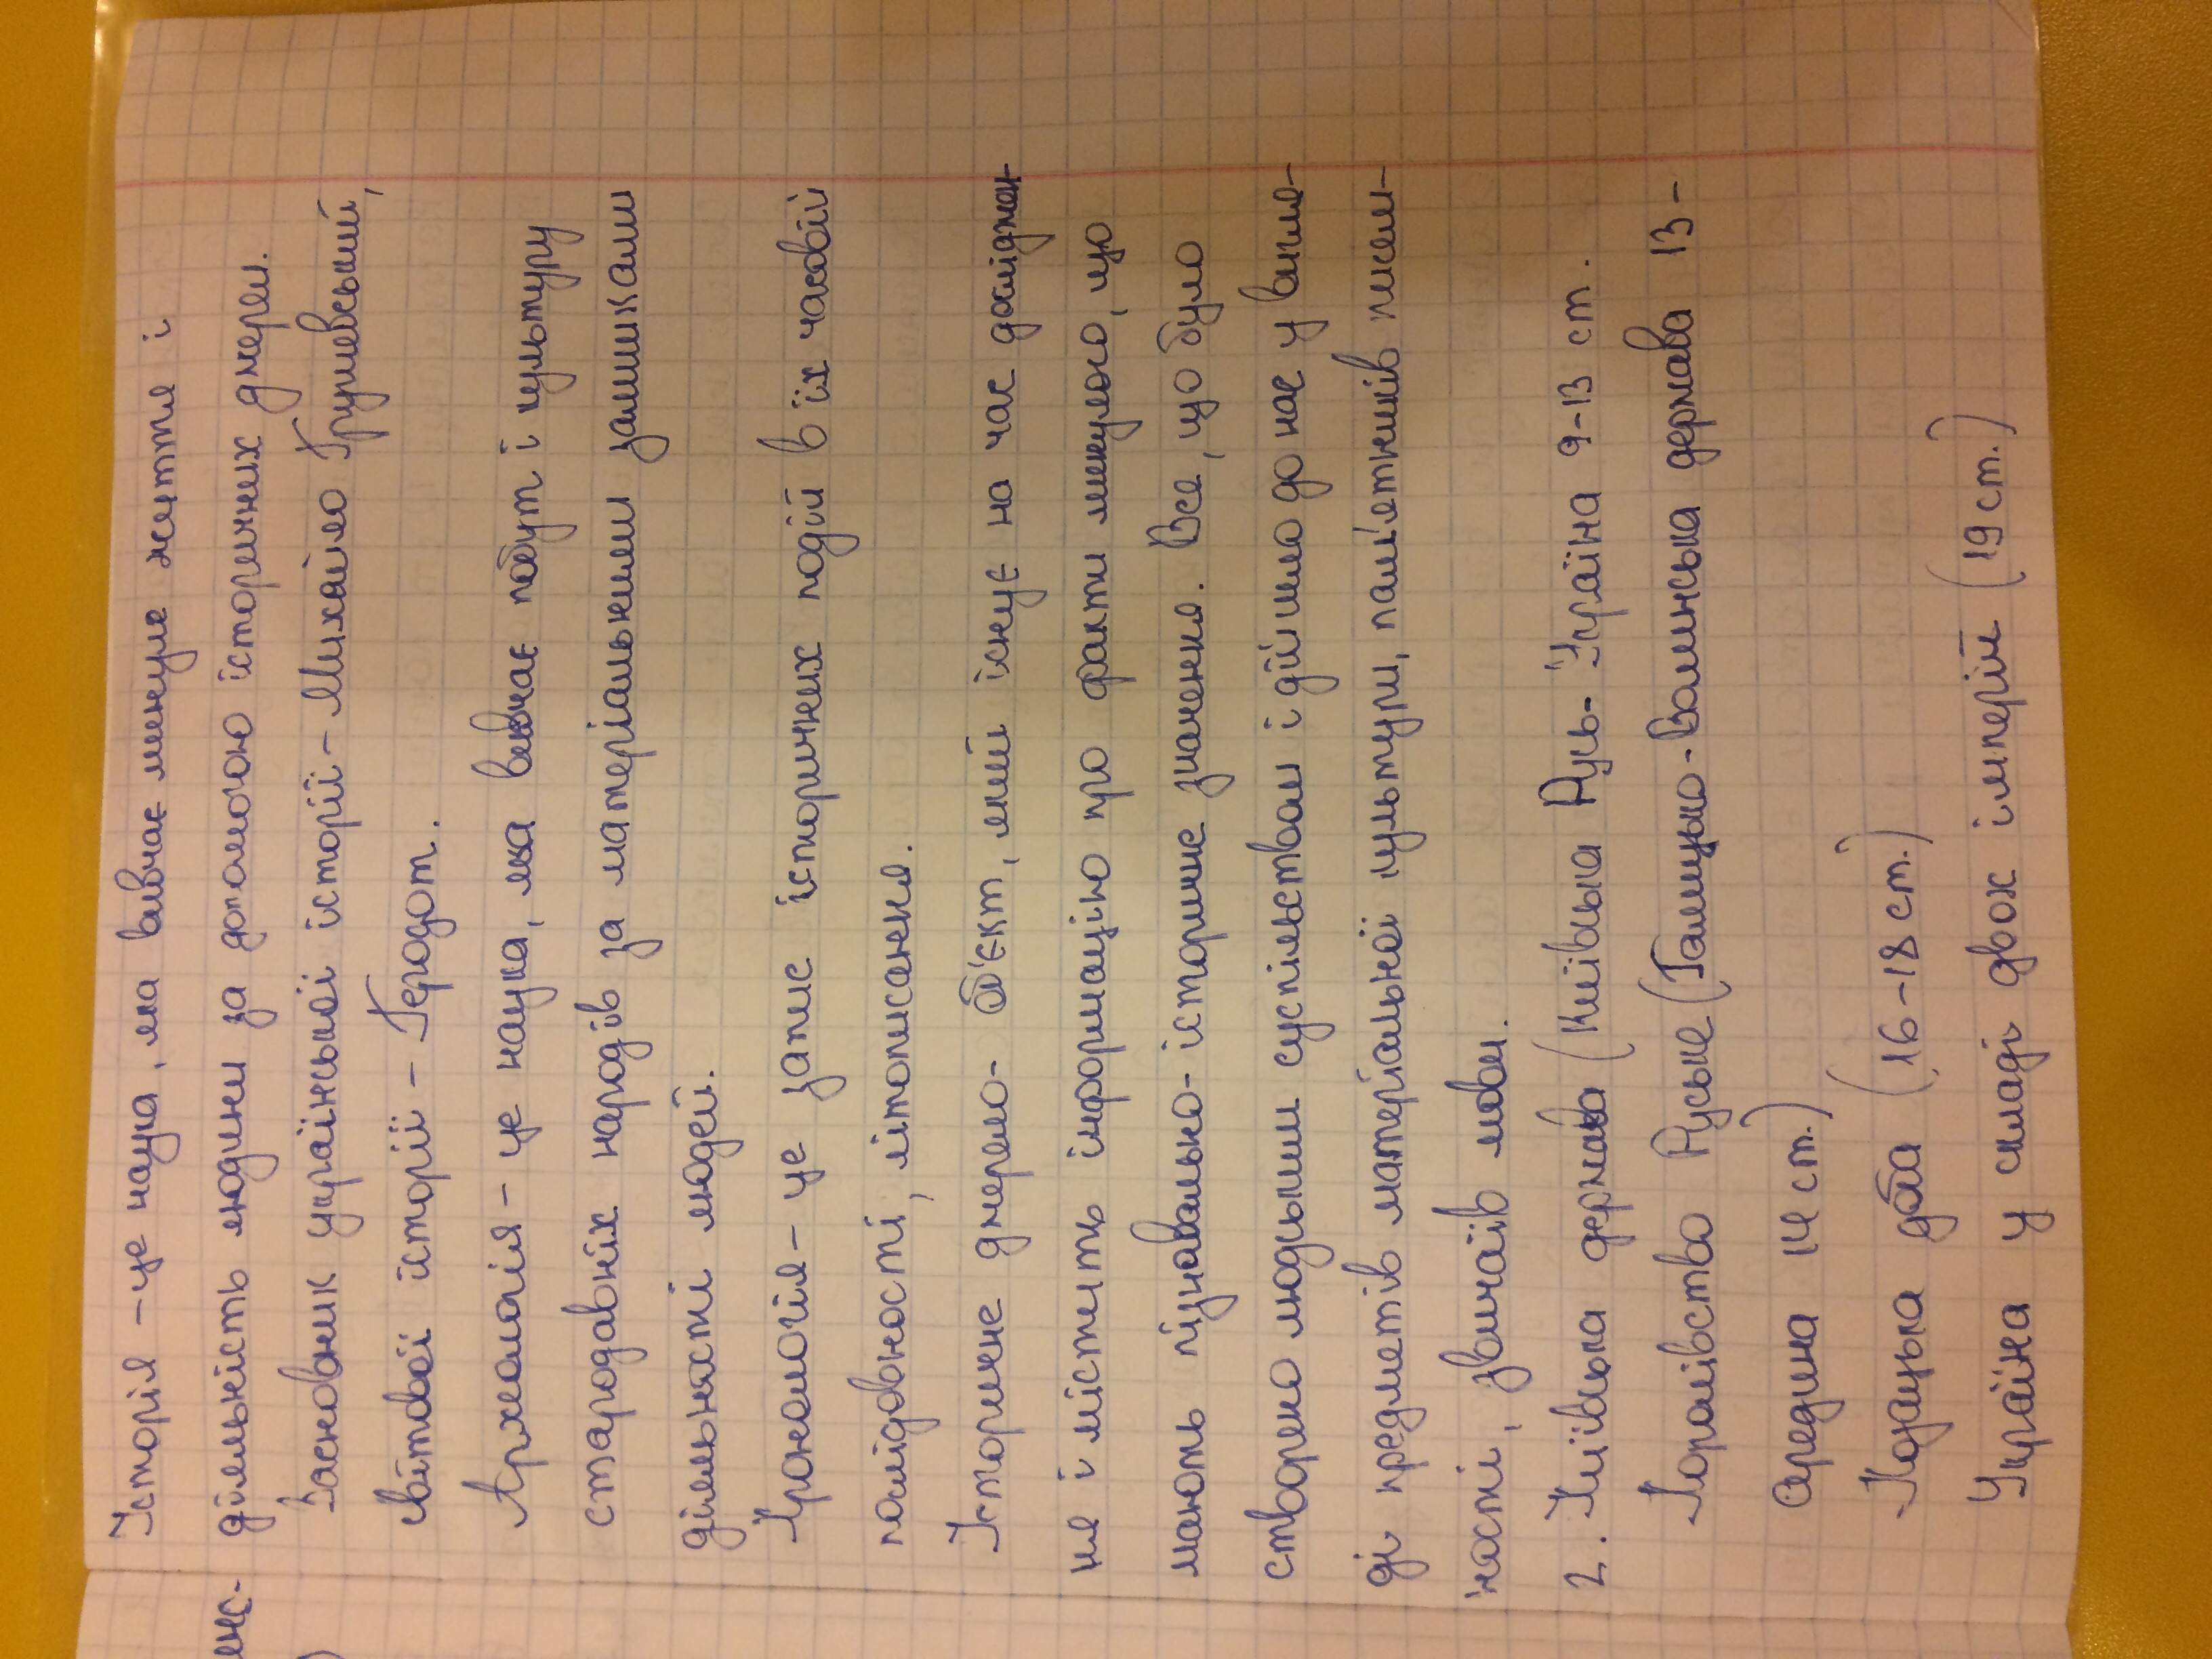 Історія – це наука, яка вивчає минуле життя і
діяльність людини за допомогою історичних джерел.
Засновник української історії – Михайло Грушевський,
світової історії – Геродот.
Археологія – це наука, яка вивчає побут і культуру
стародавніх народів за матеріальними залишками
діяльності людей.
Хронологія – це запис історичних подій в їх часовій
послідовності, літописання.
Історичне джерело - об'єкт, який існує на час досліджен-
ня і містить інформацію про факти минулого, що
мають пізнавально-історичне значення. Все, що було
створено людським суспільством і дійшло до нас у вигля-
ді предметів матеріальної культури, пам'ятників писем-
ності, звичаїв мови.
2. Київська держава (Київська Русь-Україна 9-13 ст.
Королівство Руське (Галицько-Волинська держава 13-
Середина 14 ст.)
Козацька доба (16-18 ст.)
Україна у складі двох імперій (19 ст.)